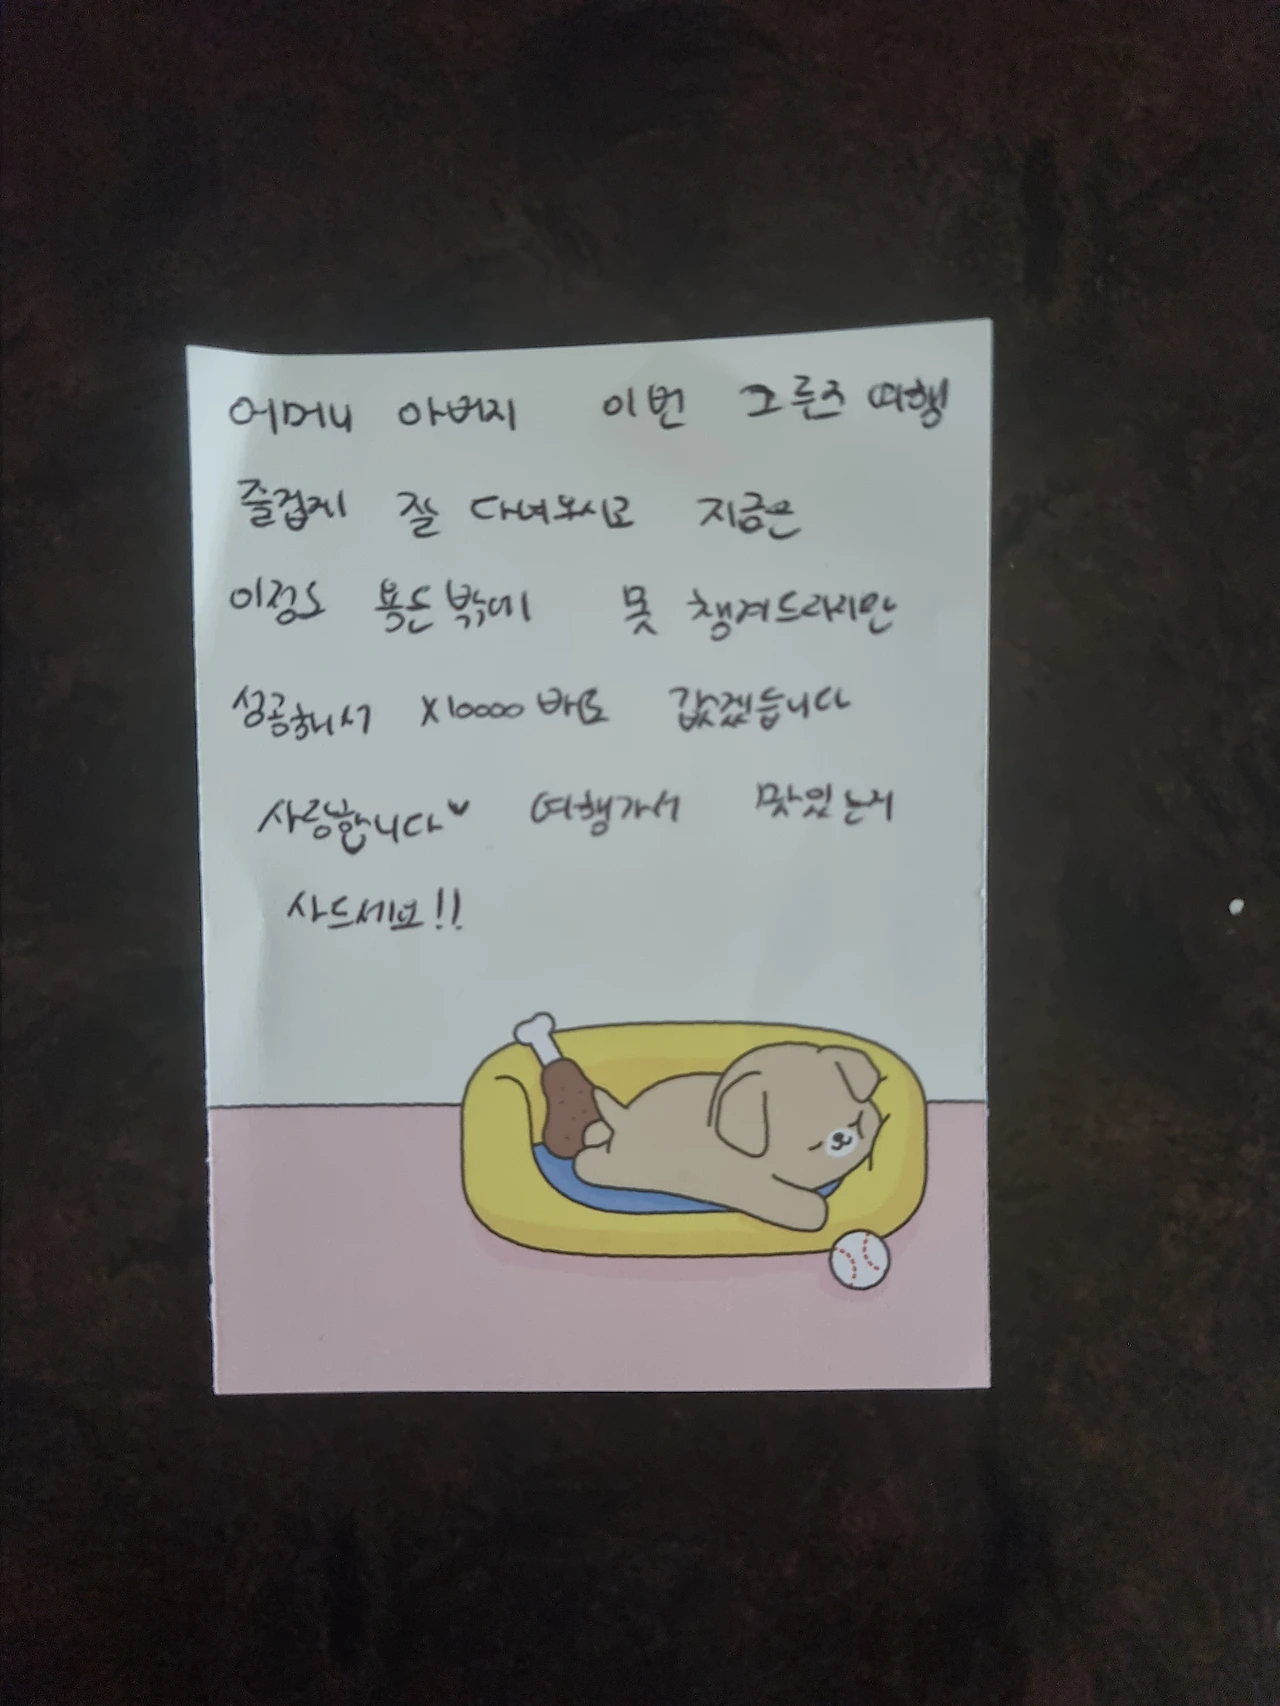 어머니 아버지 이번 그루즈 여행
즐겁게 잘 다녀오시고 지금은
이정도 용돈밖에 못 챙겨드리지만
성공해서 X10000배로 갚겠습니다
사랑합니다♥ 여행가서 맛있는거
사드세요!!